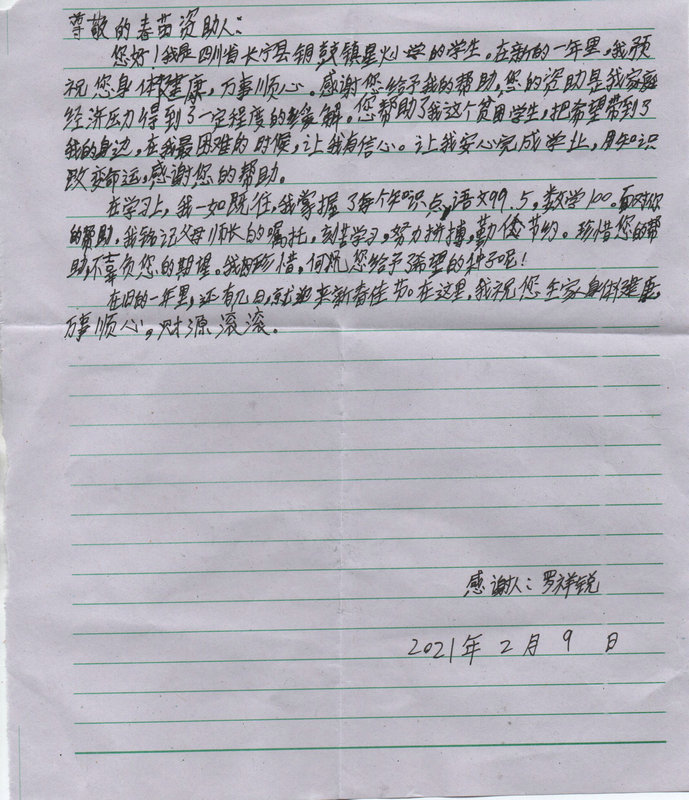 尊敬的春苗资助人:
您好!我是四川省长宁县铜鼓镇星火小学的学生。在新的一年里,我预
祝您身体健康,万事顺心。感谢您给予我的帮助,您的资助是我家庭
经济压力得到了一定程度的缓解。您帮助了我这个贫困学生,把希望带到了
我的身边,在我最困难的时候,让我有信心。让我安心完成学业,用知识
改变命运,感谢您的帮助。
在学习上,我一如既往,我掌握了每个知识点,语文99.5,数学100。面对你
的帮助,我铭记父母师长的嘱托,刻苦学习,努力拼搏,勤俭节约。珍惜您的帮
助,不辜负您的期望。我因珍惜,何况您给予希望的种子呢!
在旧的一年里,还有几日,就迎来新春佳节。在这里,我祝您全家身体健康,
万事顺心,财源滚滚。
感谢人:罗祥锐
2021年2月9日